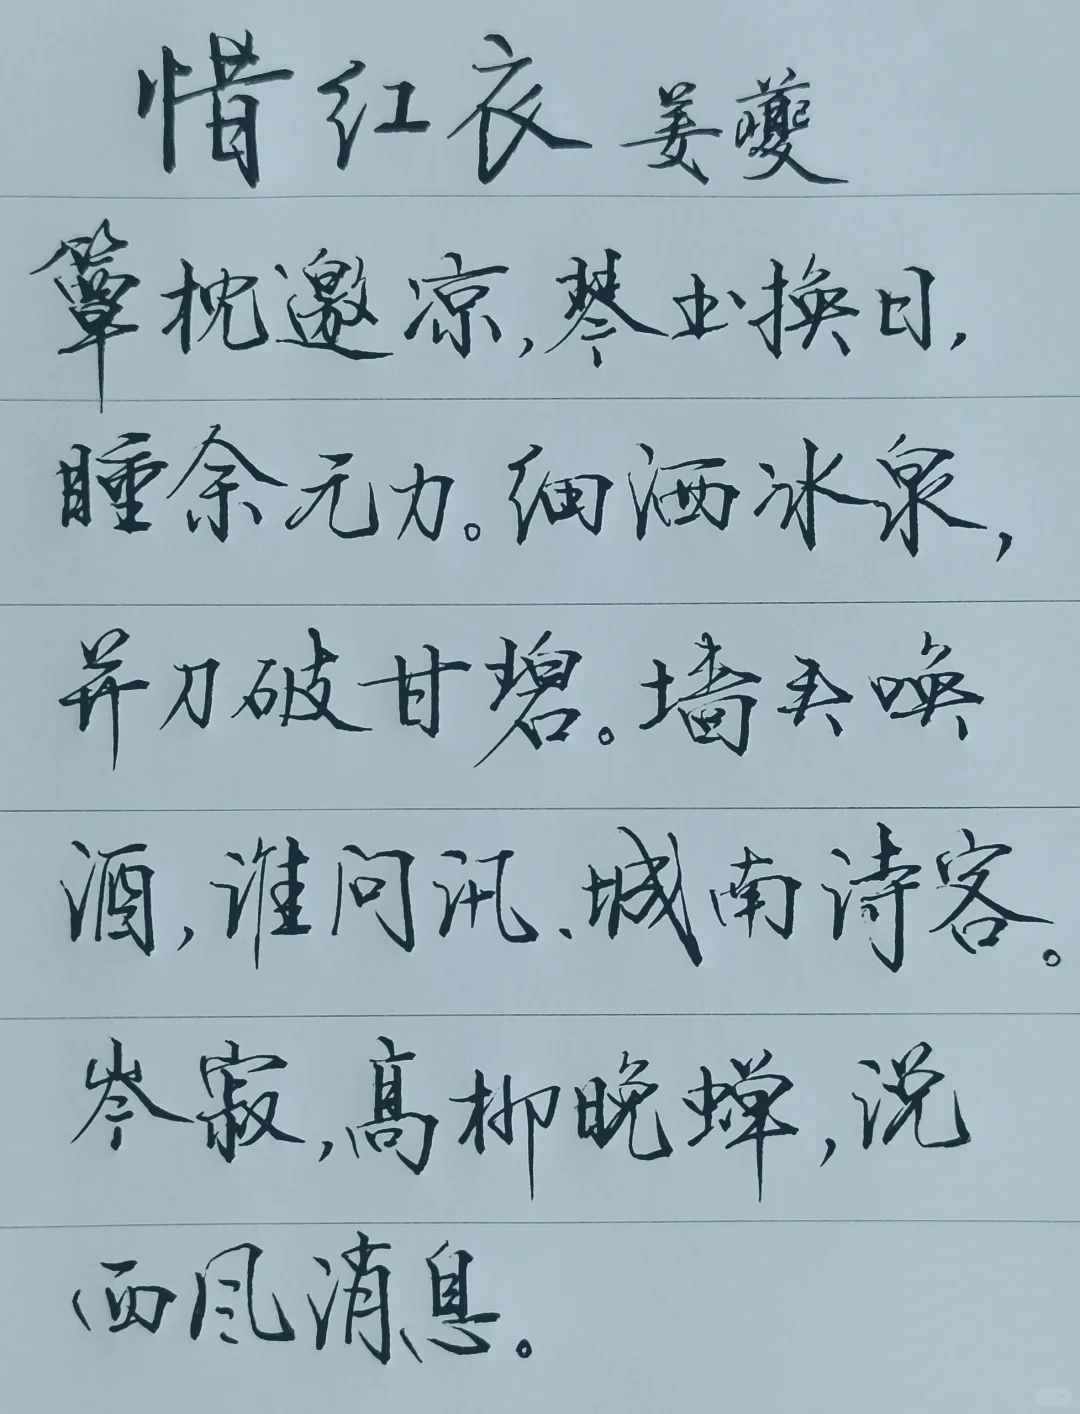 惜红衣 姜夔
簟枕邀凉,琴书换日,
睡余无力。细洒冰泉,
并刀破甘碧。墙头唤
酒,谁问讯、城南诗客。
岑寂,高柳晚蝉,说
西风消息。